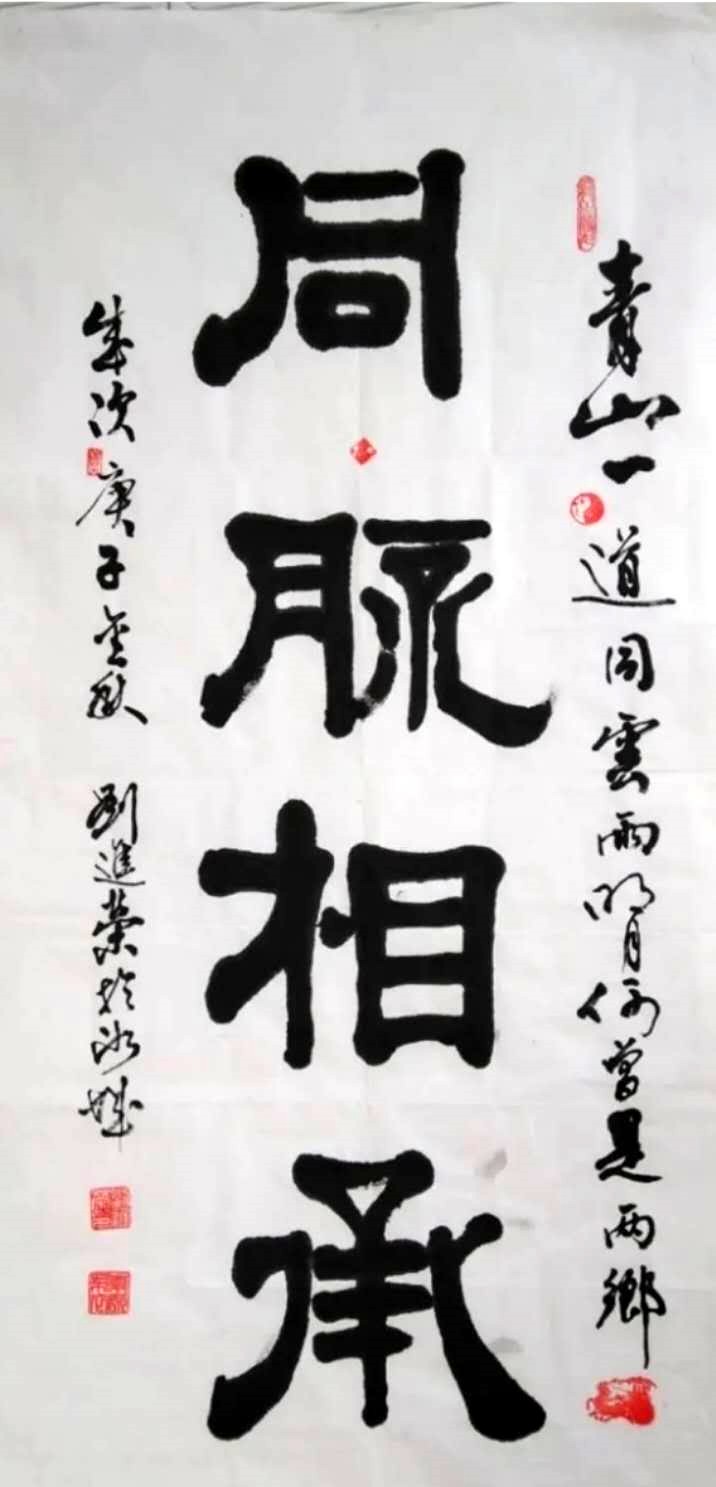 青山一道同雲雨明月何曾是两鄉
同脈相承
歲次庚子金秋 劉進榮於冰城